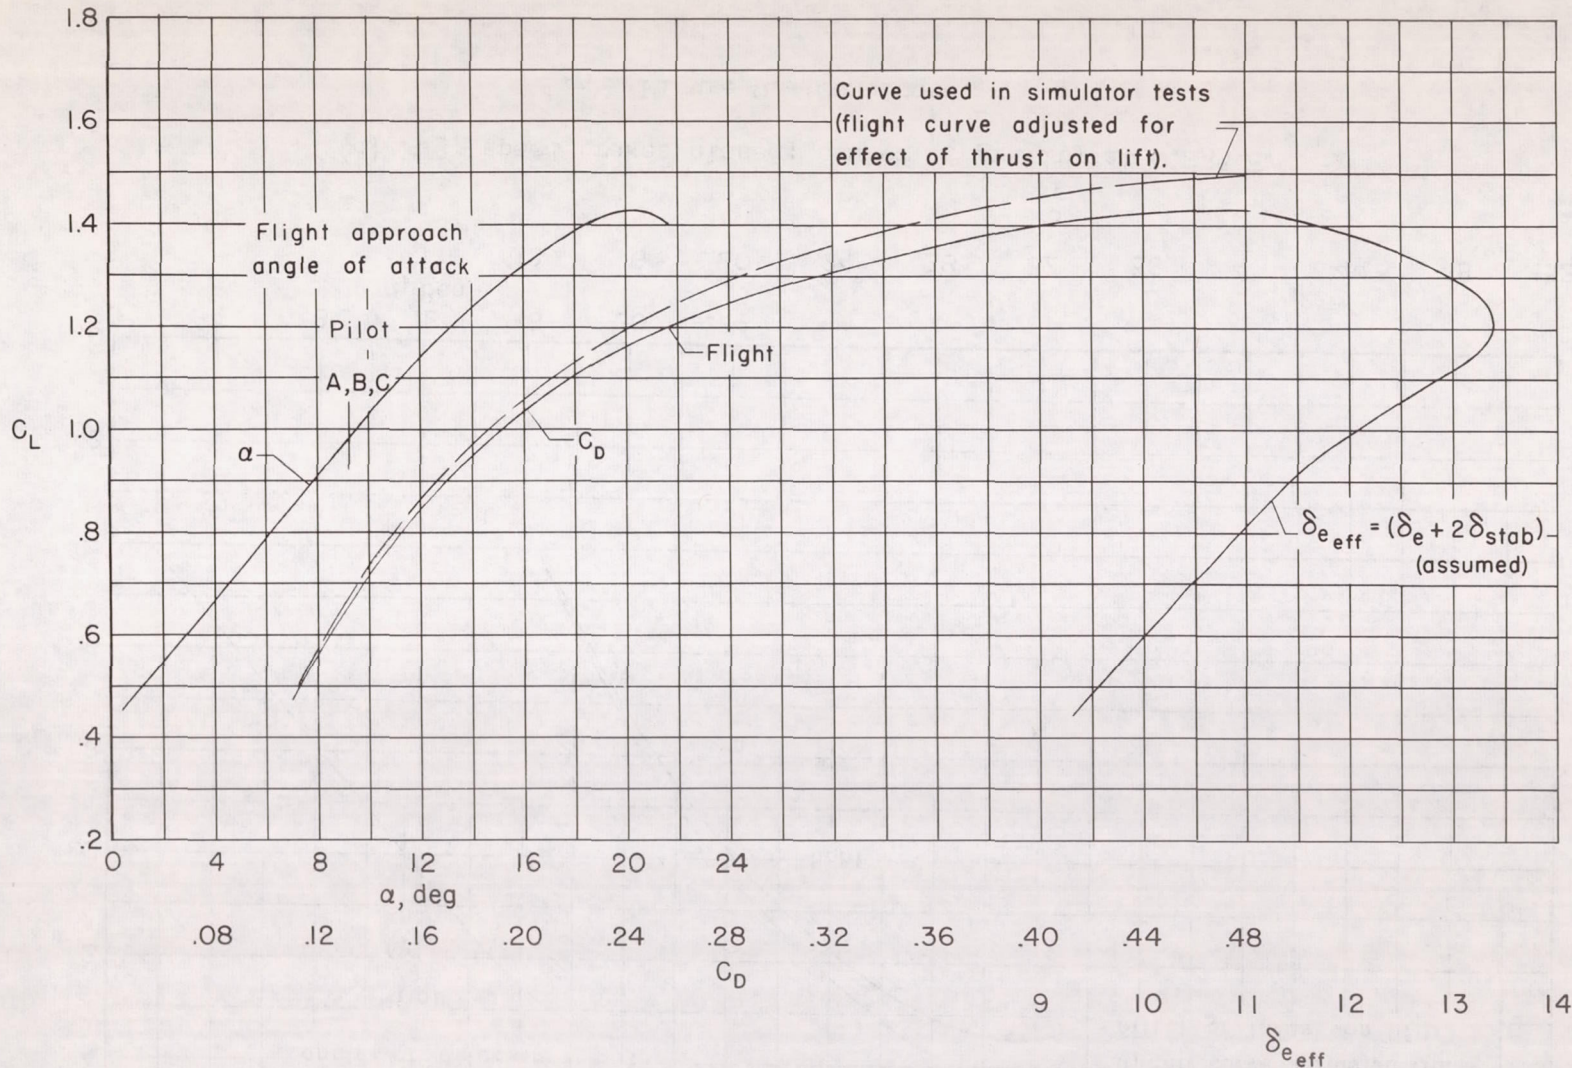 1.8
1.6
1.4
1.2
1.0
.8
.6
.4
.2
C_L
Curve used in simulator tests
(flight curve adjusted for
effect of thrust on lift).
Flight approach
angle of attack
Pilot
A,B,C
α
Flight
C_D
δ_e_eff = (δ_e + 2δ_stab)
(assumed)
0 4 8 12 16 20 24
α, deg
.08 .12 .16 .20 .24 .28 .32 .36 .40 .44 .48
C_D
9 10 11 12 13 14
δ_e_eff